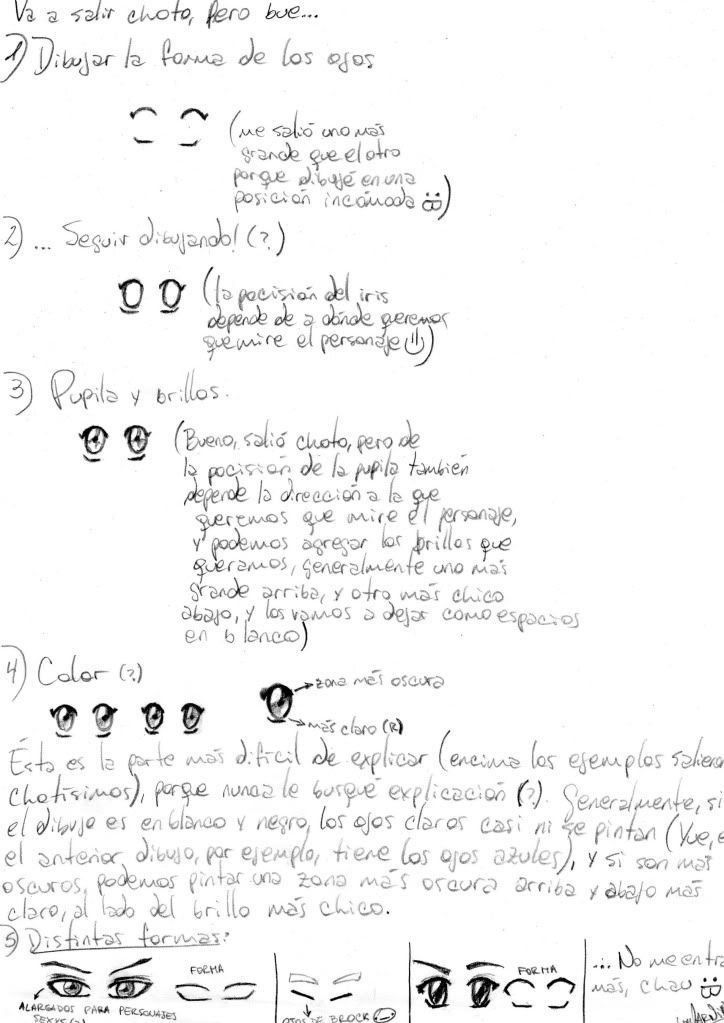 Va a salir choto, pero bue...
1) Dibujar la forma de los ojos
(me salió uno más
grande que el otro
porque dibujé en una
posición incómoda
2) ... Seguir dibujando! (?)
(la pocisión del iris
depende de a dónde queremos
que mire el personaje
3) Pupila y brillos.
(Bueno, salió choto, pero de
la pocisión de la pupila también
depende la dirección a la que
queremos que mire el personaje,
y podemos agregar los brillos que
queramos, generalmente uno más
grande arriba, y otro más chico
abajo, y los vamos a dejar como espacios
en blanco)
4) Color (?)
zona más oscura
más claro (R)
Ésta es la parte más difícil de explicar (encima los ejemplos saliero
chotísimos), porque nunca le busqué explicación (?). Generalmente, si
el dibujo es en blanco y negro, los ojos claros casi ni se pintan (Yue, e
el anterior dibujo, por ejemplo, tiene los ojos azules), y si son más
oscuros, podemos pintar una zona más oscura arriba y abajo más
claro, al lado del brillo más chico.
5) Distintas formas:
FORMA
ALARGADOS PARA PERSONAJES
SEXYS (?)
OJOS DE BROCK
FORMA
... No me entra
más, chau